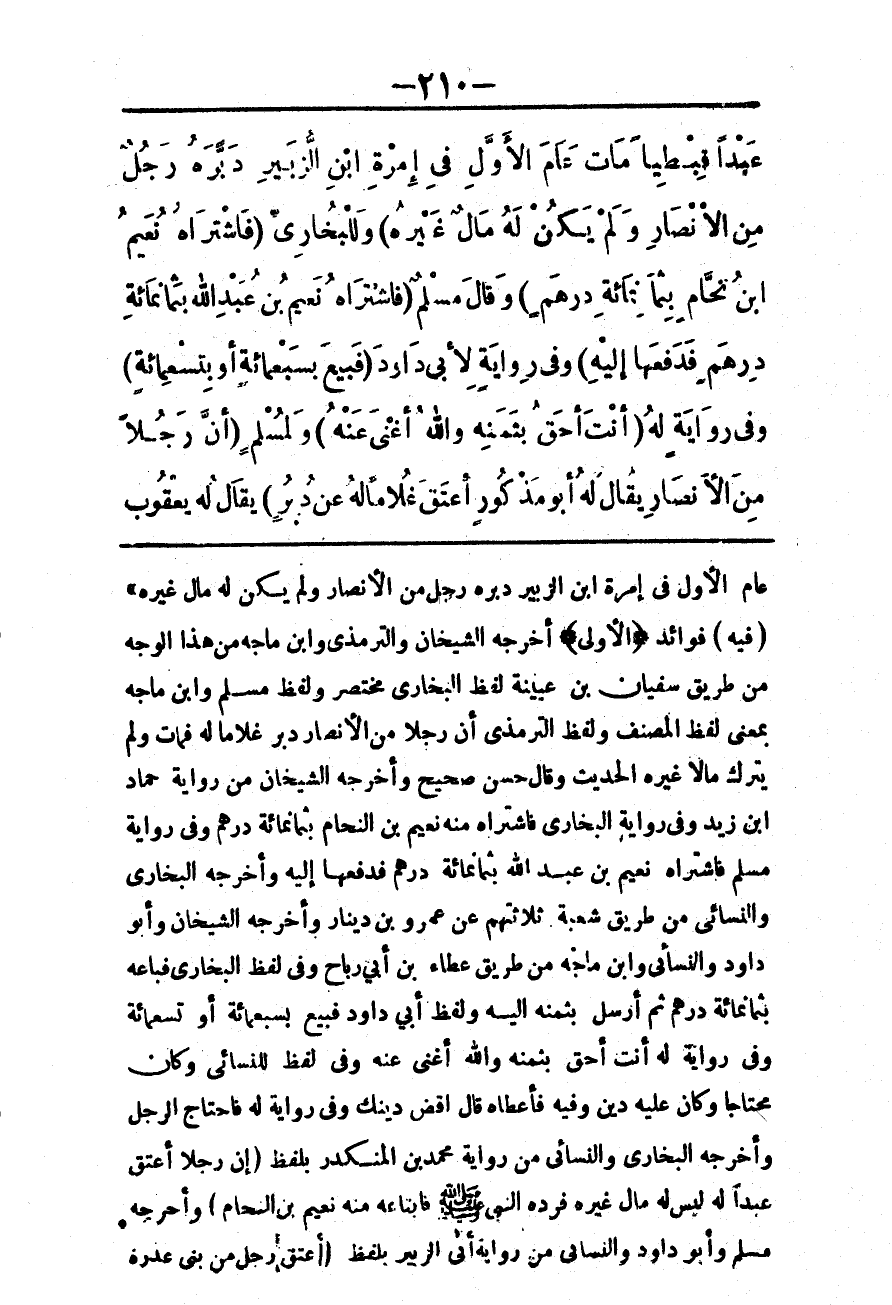 -٢١٠-
عَبْداً قِبْطِياً مَاتَ عَامَ الأَوَّلِ فِي إِمْرَةِ ابْنِ الزُّبَيْرِ دَبَّرَهُ رَجُلٌ
مِنَ الأَنْصَارِ وَلَمْ يَكُنْ لَهُ مَالٌ غَيْرهُ) وَلِلْبُخَارِيِّ (فَاشْتَرَاهُ نُعَيمُ
ابنُ نَحَّامٍ بِثَمَانِمَائَةِ دِرهَمٍ) وَقَالَ مُسْلِمٌ (فاشتَرَاهُ نُعَيمُ بنُ عُبَدِ اللهِ بثَمَانِمَائَةِ
دِرهَمٍ فَدَفَعَهَا إِليْهِ) وفى رِوايَةٍ لِأَبى دَاودَ (فَبِيعَ بسَبْعمائَةٍ أو بِتسْعِمائَةٍ)
وفى روَايَةٍ لهُ (أنْتَ أحَقُّ بثَمَنِه واللهُ أغْنَى عَنْهُ) وَلمُسْلمٍ (أنَّ رَجُلاً
مِنَ الأَنصَارِ يقَالُ لهُ أبو مَذْكُورٍ أعتَقَ غُلاماً لهُ عن دُبُرٍ) يقَالُ لُه يعقُوب
عام الأول فى إمرة ابن الزبير دبره رجل من الأنصار ولم يكن له مال غيره»
(فيه) فوائد ﴿الأولى﴾ أخرجه الشيخان والترمذى وابن ماجه من هذا الوجه
من طريق سفيان بن عيينة لفظ البخارى مختصر ولفظ مسلم وابن ماجه
بمعنى لفظ المصنف ولفظ الترمذى أن رجلا من الأنصار دبر غلاما له فمات ولم
يترك مالا غيره الحديث وقال حسن صحيح وأخرجه الشيخان من رواية حماد
ابن زيد وفى رواية البخارى فاشتراه منه نعيم بن النحام بثمانمائة درهم وفى رواية
مسلم فاشتراه نعيم بن عبد الله بثمانمائة درهم فدفعها إليه وأخرجه البخارى
والنسائى من طريق شعبة ثلاثتهم عن عمرو بن دينار وأخرجه الشيخان وأبو
داود والنسائى وابن ماجه من طريق عطاء بن أبي رباح وفى لفظ البخارى فباعه
بثمانمائة درهم ثم أرسل بثمنه اليه ولفظ أبي داود فبيع بسبعمائة أو تسعمائة
وفى رواية له أنت أحق بثمنه والله أغنى عنه وفى لفظ للنسائى وكان
محتاجا وكان عليه دين وفيه فأعطاه قال اقض دينك وفى رواية له فاحتاج الرجل
وأخرجه البخارى والنسائى من رواية محمد بن المنكدر بلفظ (إن رجلا أعتق
عبداً له ليس له مال غيره فرده النبى ﷺ فابتاعه منه نعيم بن النحام) وأخرجه
مسلم وأبو داود والنسائى من رواية أبى الزبير بلفظ (أعتق رجل من بنى عذرة